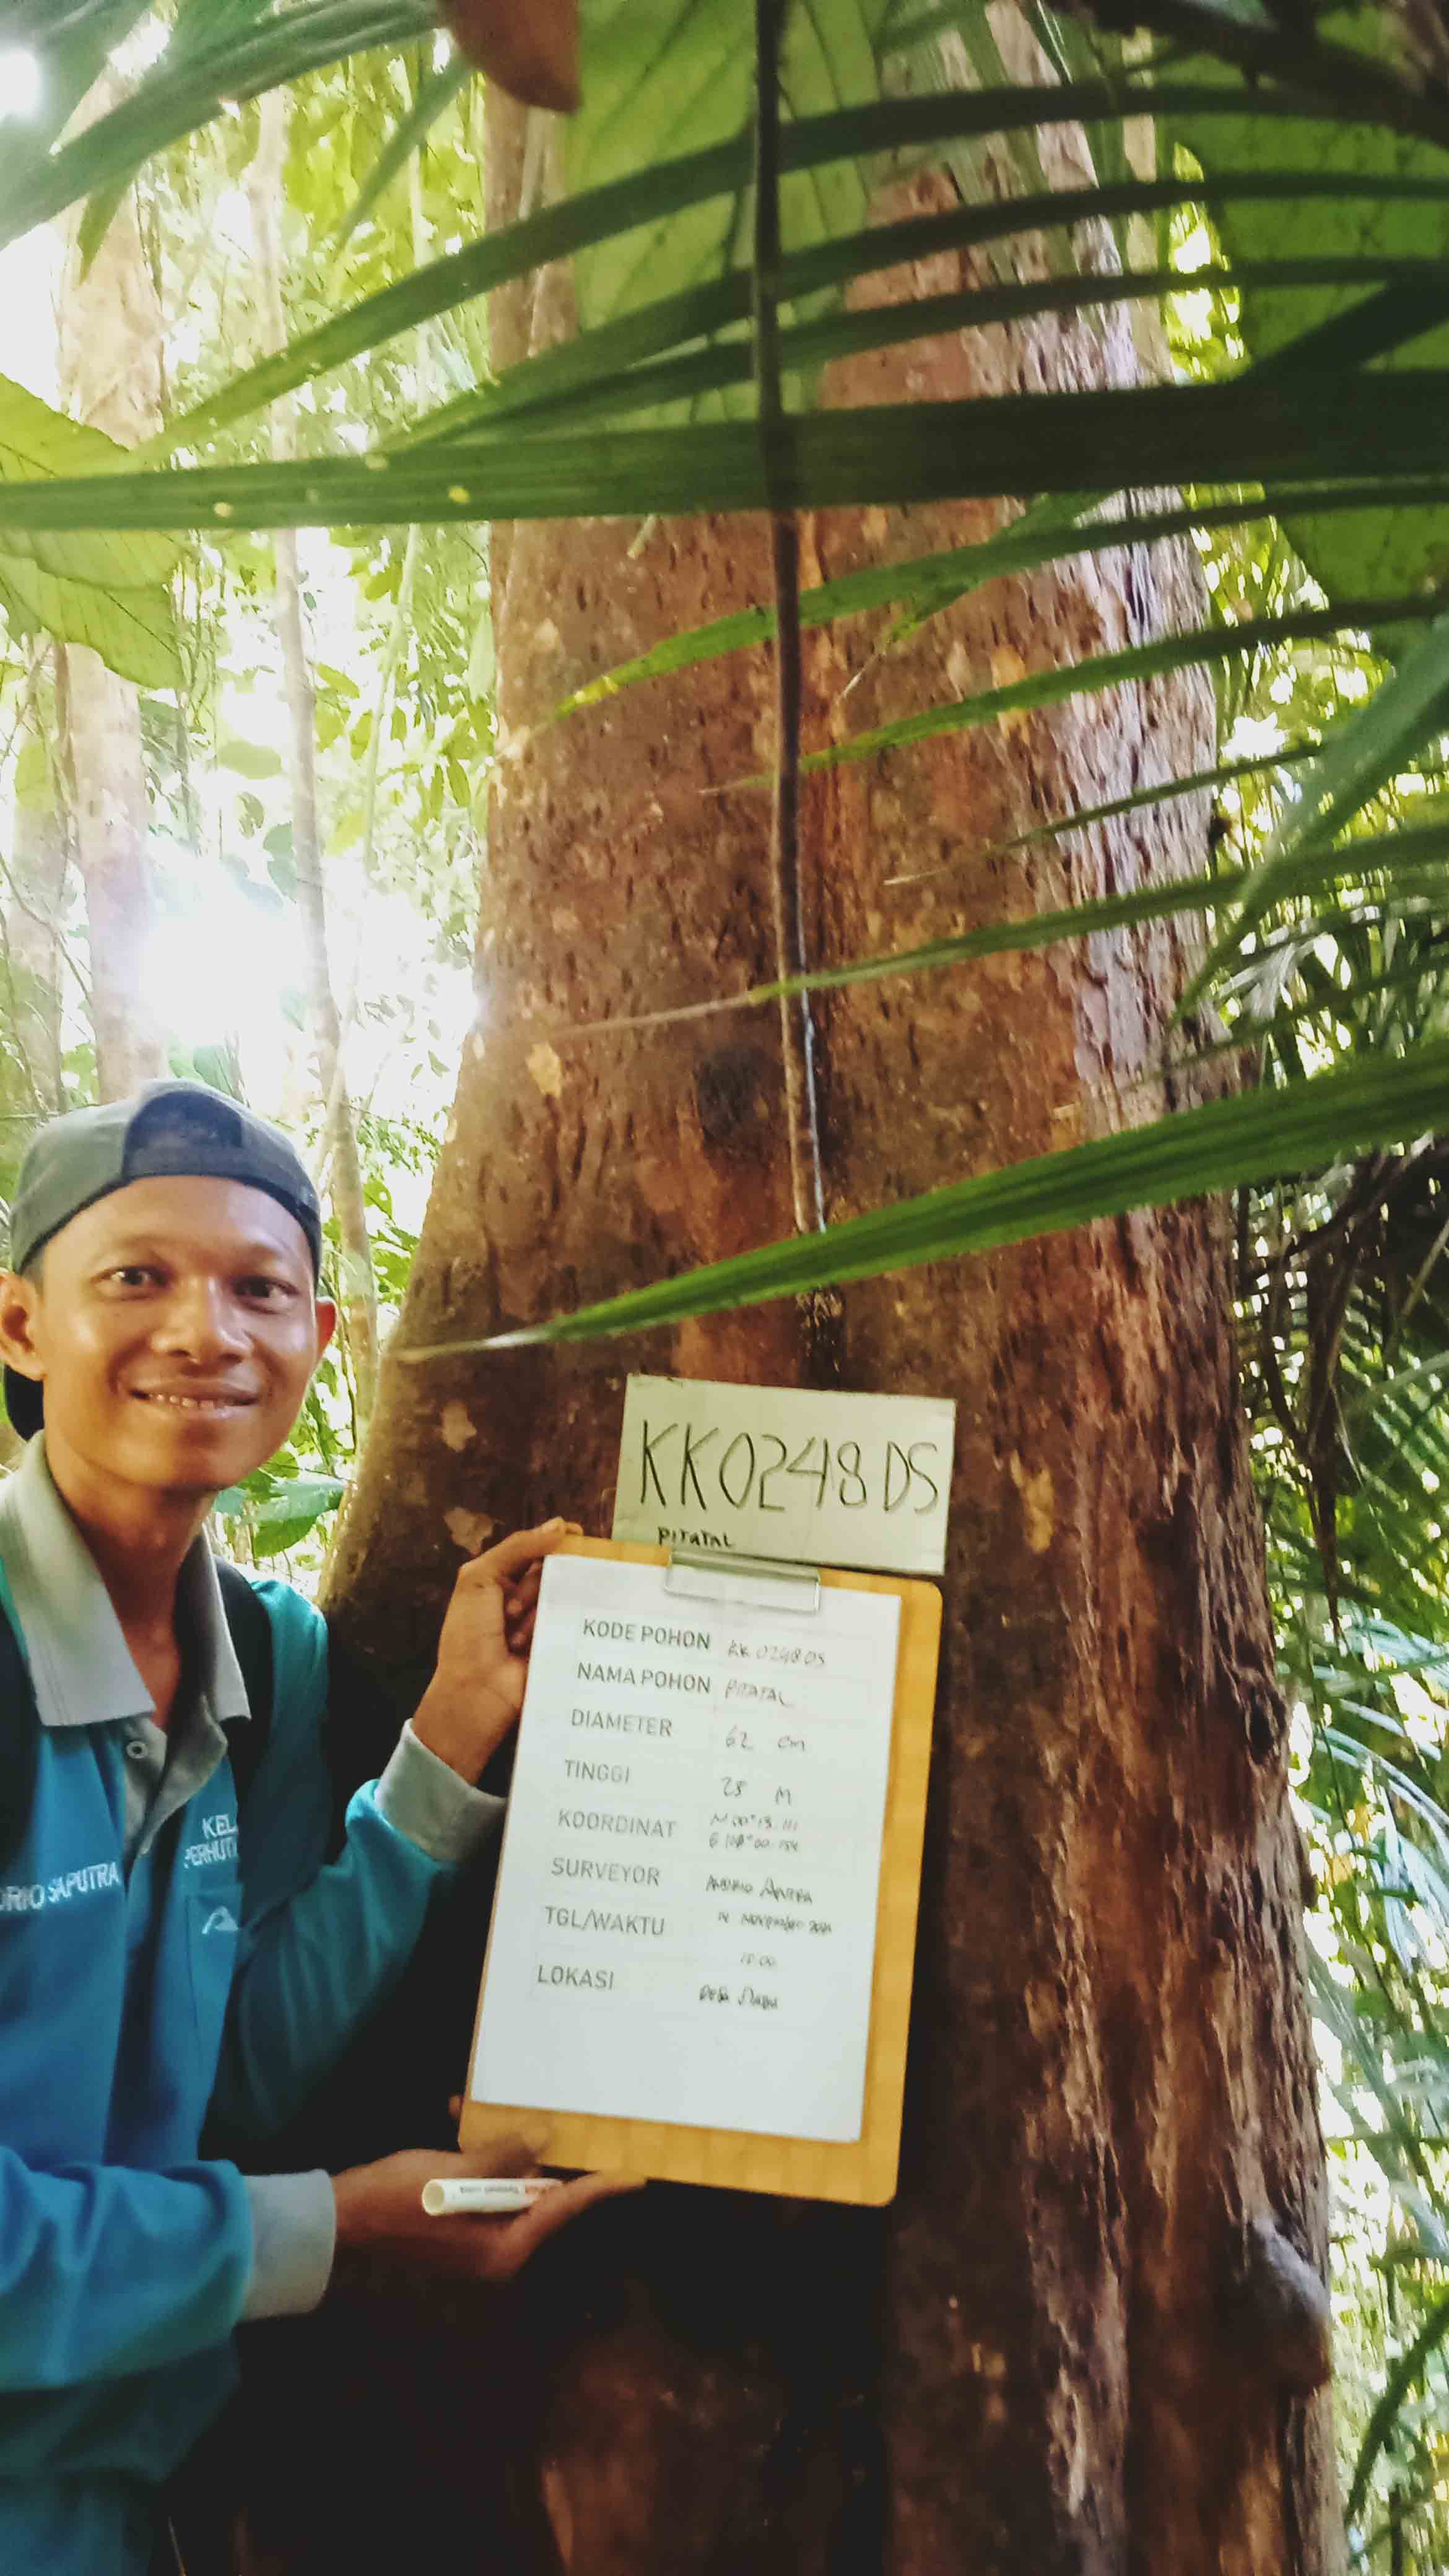 KK0248DS
PITATAL
KODE POHON KK 0248 DS
NAMA POHON PITATAL
DIAMETER 62 cm
TINGGI 28 M
KOORDINAT N 00° 13. 111
SURVEYOR
TGL/WAKTU 14 NOVEMBER
15:00
LOKASI DESA
SAPUTRA